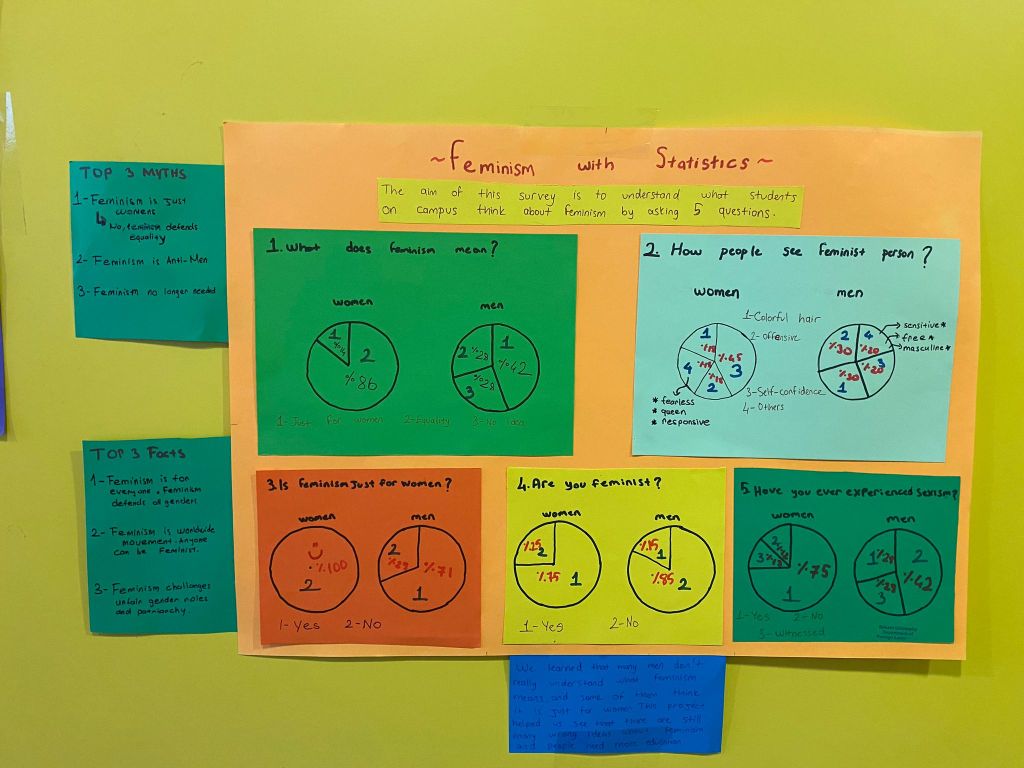 ~Feminism with Statistics~
The aim of this survey is to understand what students
on campus think about feminism by asking 5 questions.
TOP 3 MYTHS
1-Feminism is just
womens
↳ No, feminism defends
equality
2- Feminism is Anti-Men
3-Feminism no longer needed
TOP 3 Facts
1-Feminism is for
everyone. Feminism
defends all genders
2- Feminism is worldwide
movement. Anyone
can be Feminist.
3- Feminism challenges
unfair gender roles
and patriarchy.
1. What does feminism mean?
women
1
2
%86
men
1
%42
2 %28
3 %28
1-Just for women 2-Equality 3-No idea
2. How people see Feminist person?
women
men
1-Colorful hair
2-Offensive
3-Self-confidence
4-Others
1
%45
3
4
2
* fearless
* queen
* responsive
2
%30
4
%20
3
%20
%30
1
sensitive*
free*
masculine*
3.Is feminism Just for women?
women
%100
2
men
2
%29
%71
1
1-Yes 2-No
4. Are you feminist?
women
%25
2
%75
1
men
%15
1
%85
2
1-Yes 2-No
5. Have you ever experienced sexism?
women
%75
1
3
men
2
%42
1 %29
%29
3
1-Yes 2-No
3-Witnessed
We learned that many men don't
really understand what feminism
means, and some of them think
it is just for women. This project
helped us see that there are still
many wrong ideas about feminism
and people need more education